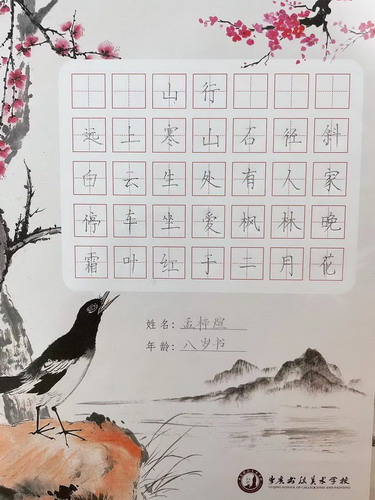 山行
远上寒山石径斜
白云生处有人家
停车坐爱枫林晚
霜叶红于二月花
姓名：孟梓煊
年龄：八岁书
书法美术学校